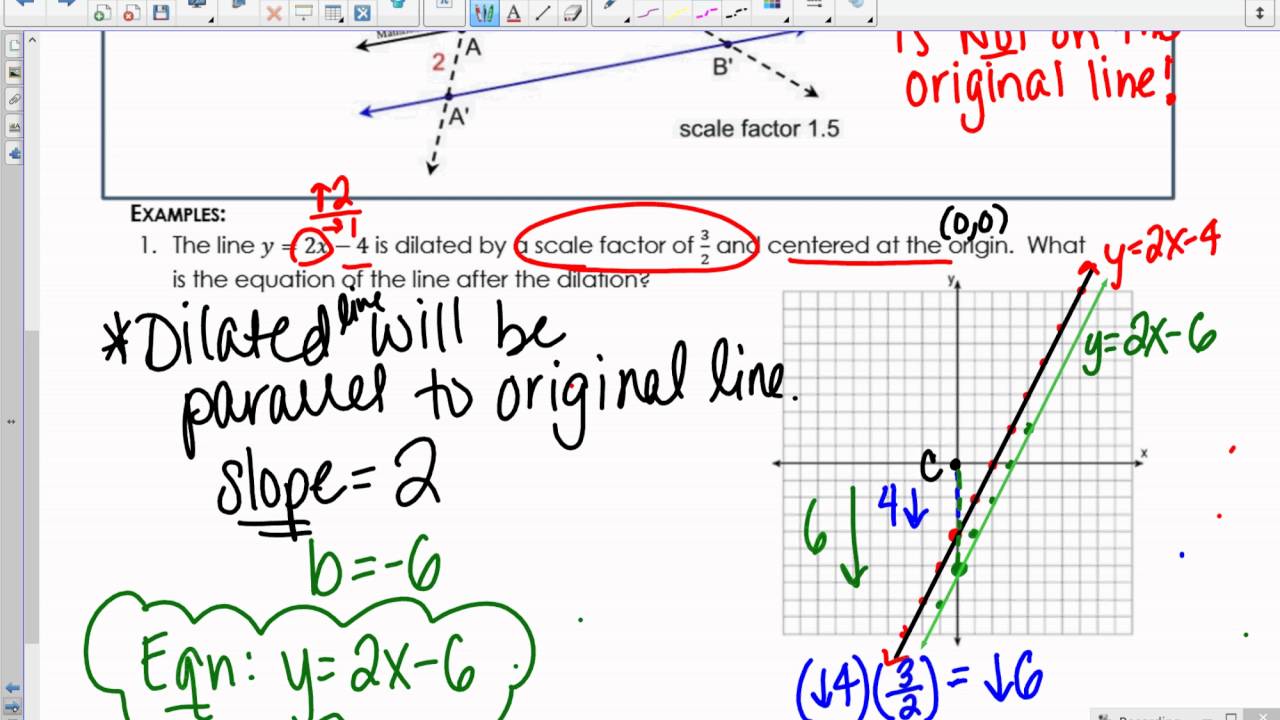 A
2
B'
is NOT on the
original line!
A'
scale factor 1.5
↑2
→1
EXAMPLES:
(0,0)
1. The line y = 2x − 4 is dilated by a scale factor of 3/2 and centered at the origin. What
is the equation of the line after the dilation?
y=2x-4
y
y=2x-6
*Dilated line will be
parallel to original line.
x
C
slope=2
4↓
6↓
b=-6
Eqn: y=2x-6
(↓4)(3/2)=↓6